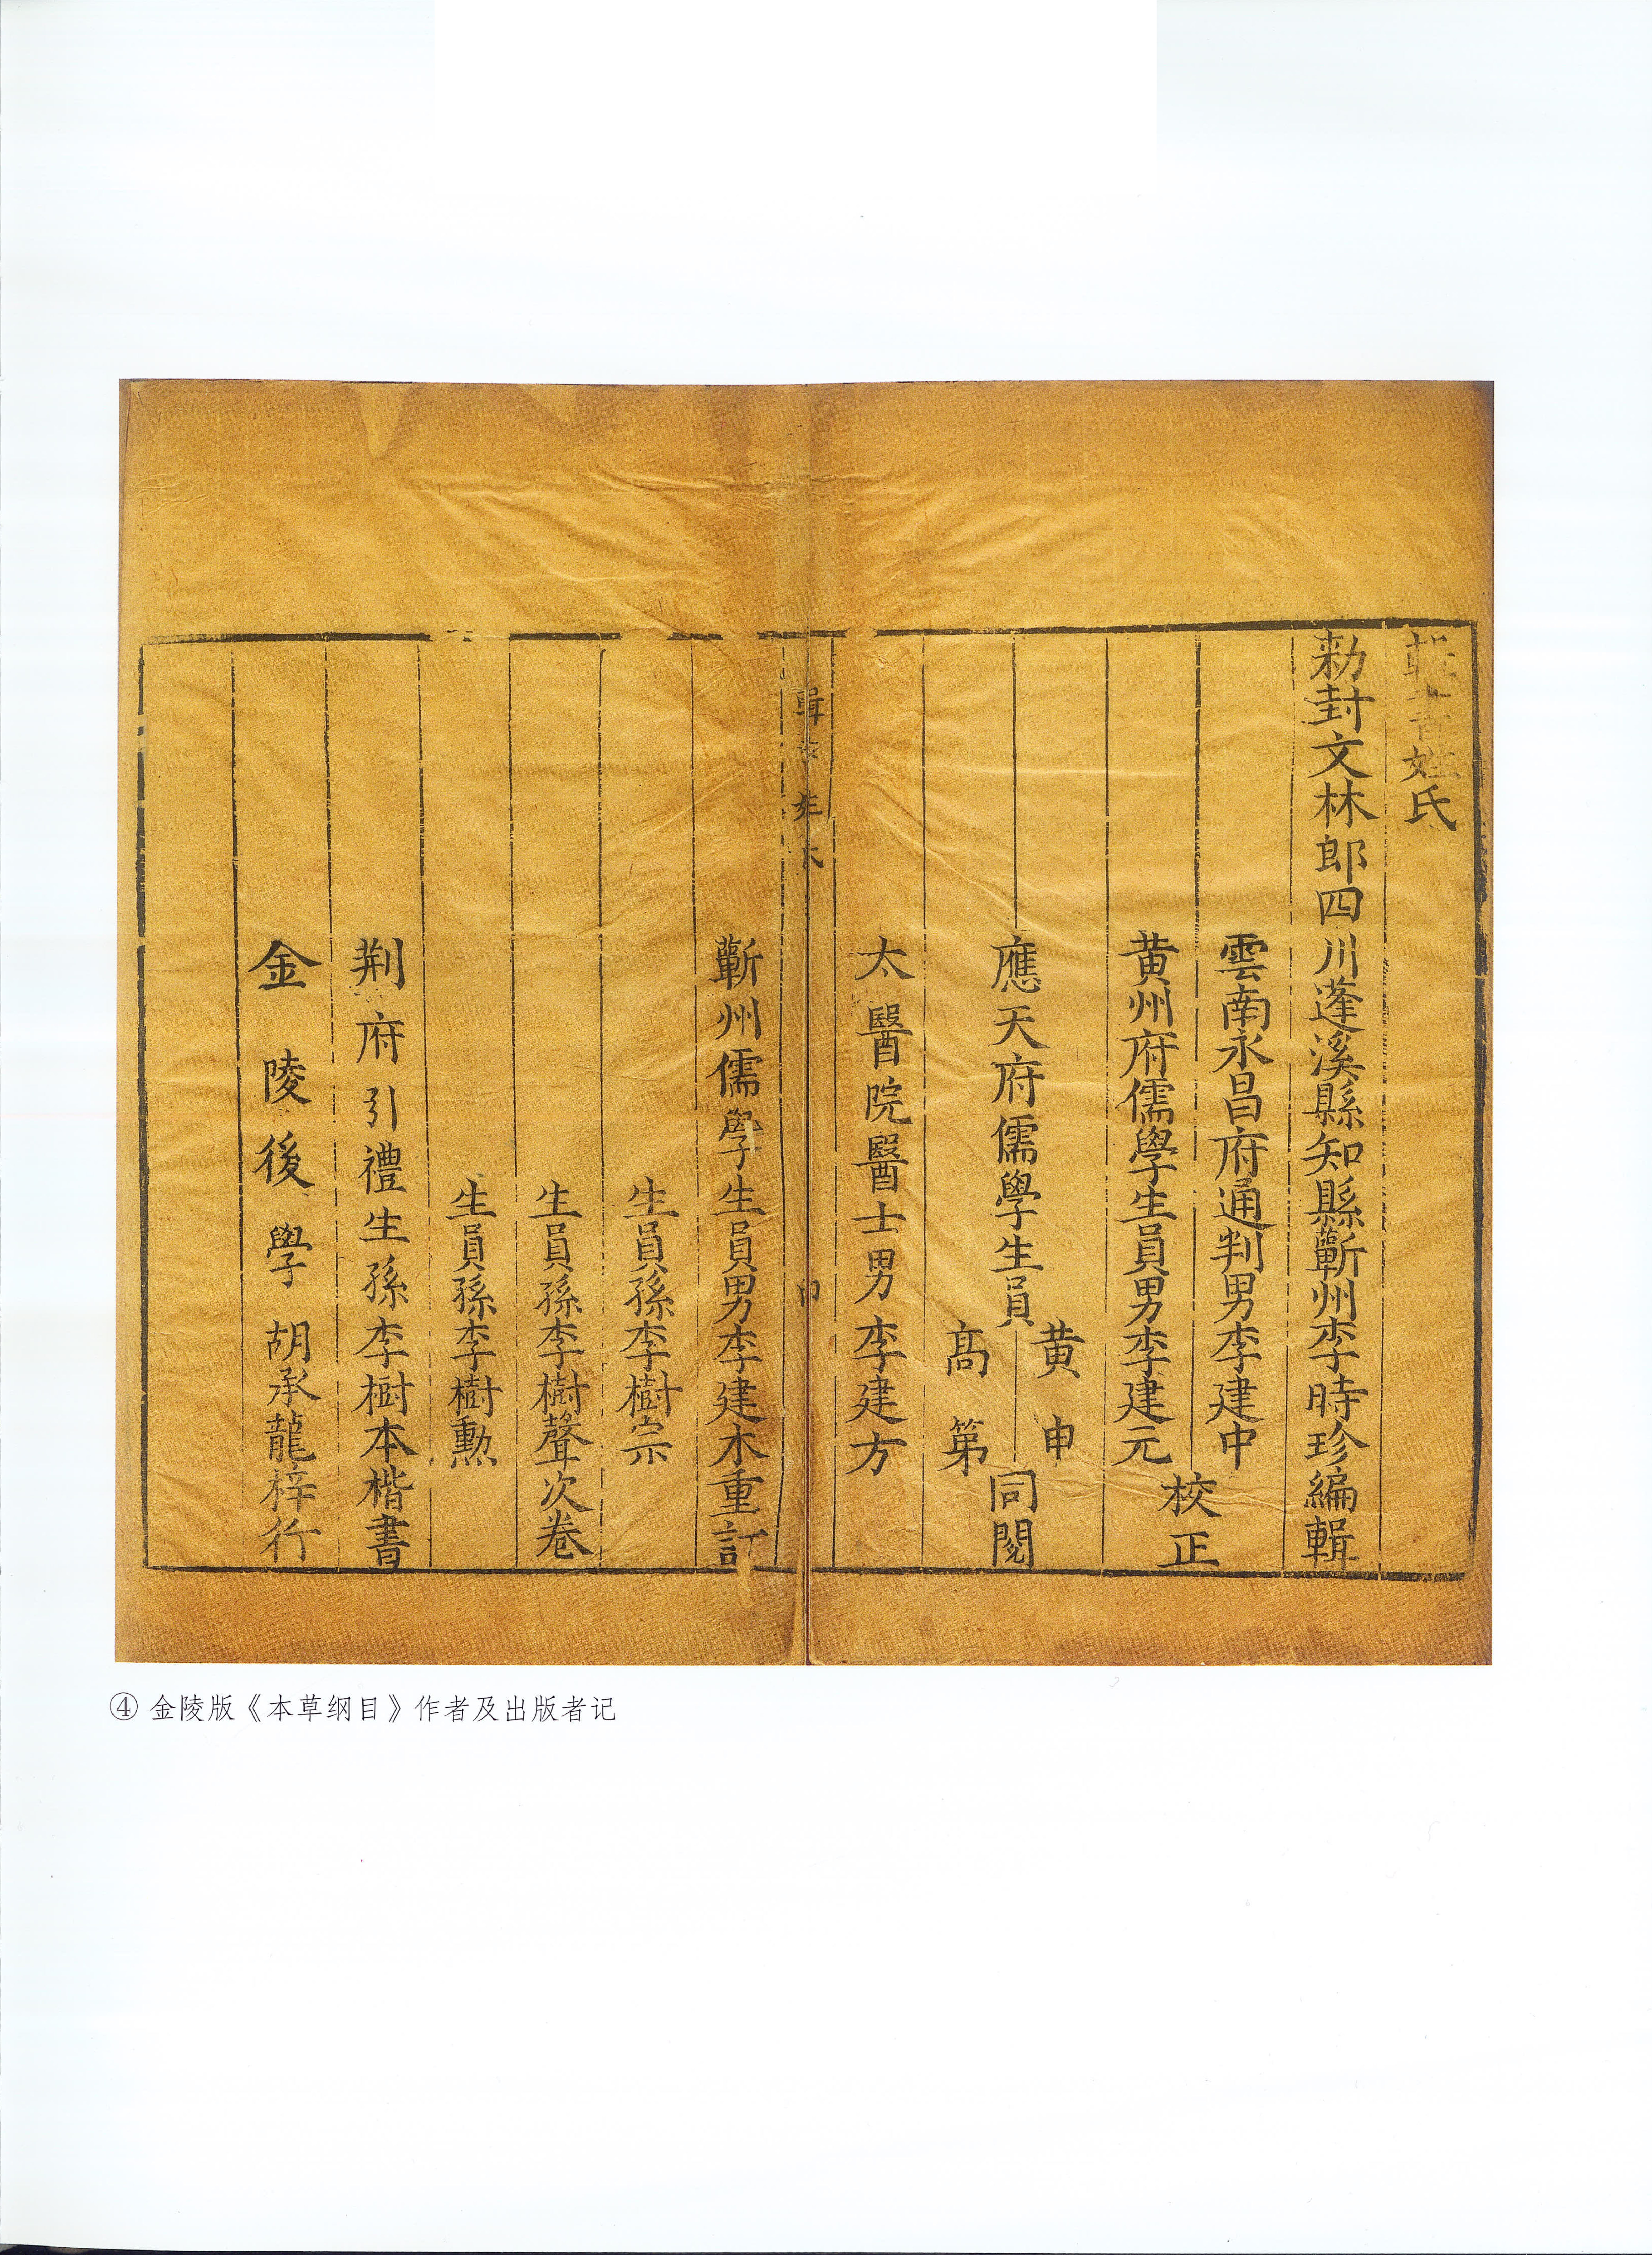 輯書姓氏
勑封文林郎四川蓬溪縣知縣蘄州李時珍編輯
雲南永昌府通判男李建中
黄州府儒學生員男李建元
校正
應天府儒學生員
黄申
高第
同閱
太醫院醫士男李建方
輯書姓氏
蘄州儒學生員男李建木重訂
生員孫李樹宗
生員孫李樹聲次卷
生員孫李樹勲
荆府引禮生孫李樹本楷書
金陵後學胡承龍梓行
④ 金陵版《本草纲目》作者及出版者记